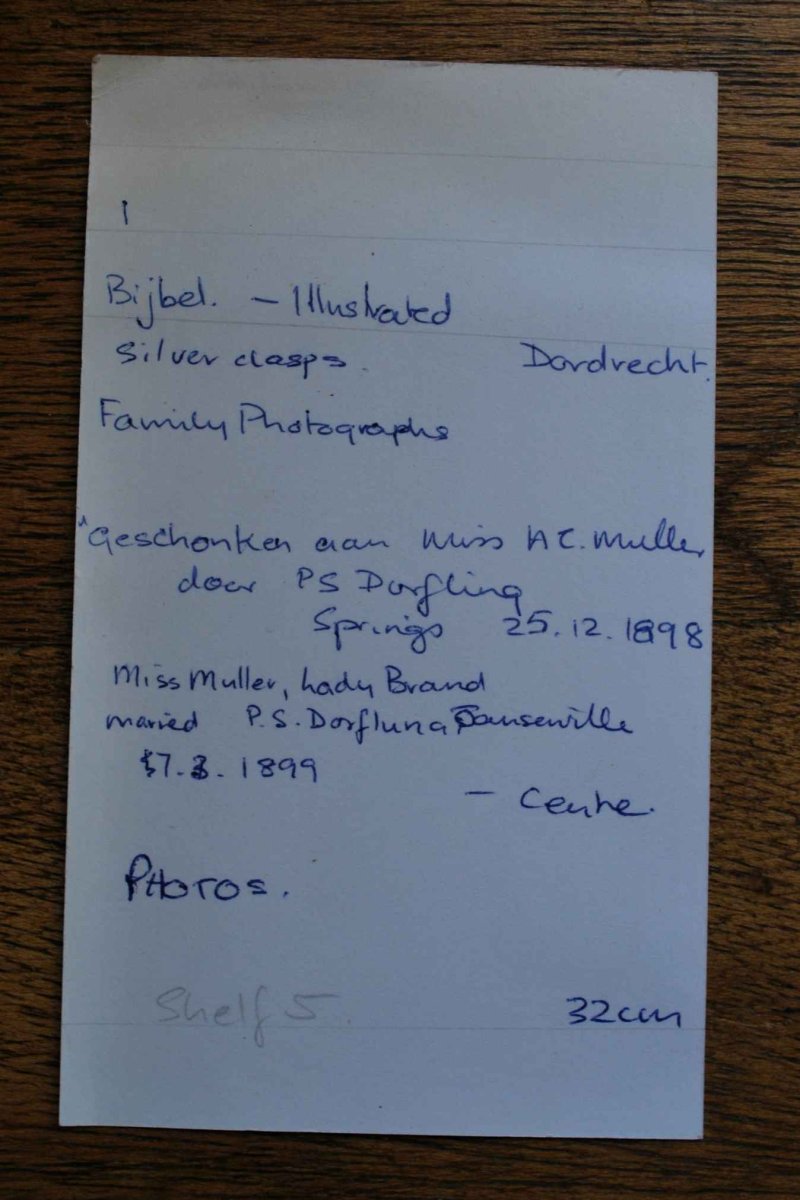 1
Bijbel. – Illustrated
Silver clasps. Dordrecht.
Family Photographs
"Geschonken aan Miss A C. Muller
door PS Dorfling
Springs 25.12.1898
Miss Muller, Lady Brand
maried P.S. Dorfling Jansenville
7.3.1899
– Centre.
PHOTOS.
Shelf 5.
32cm